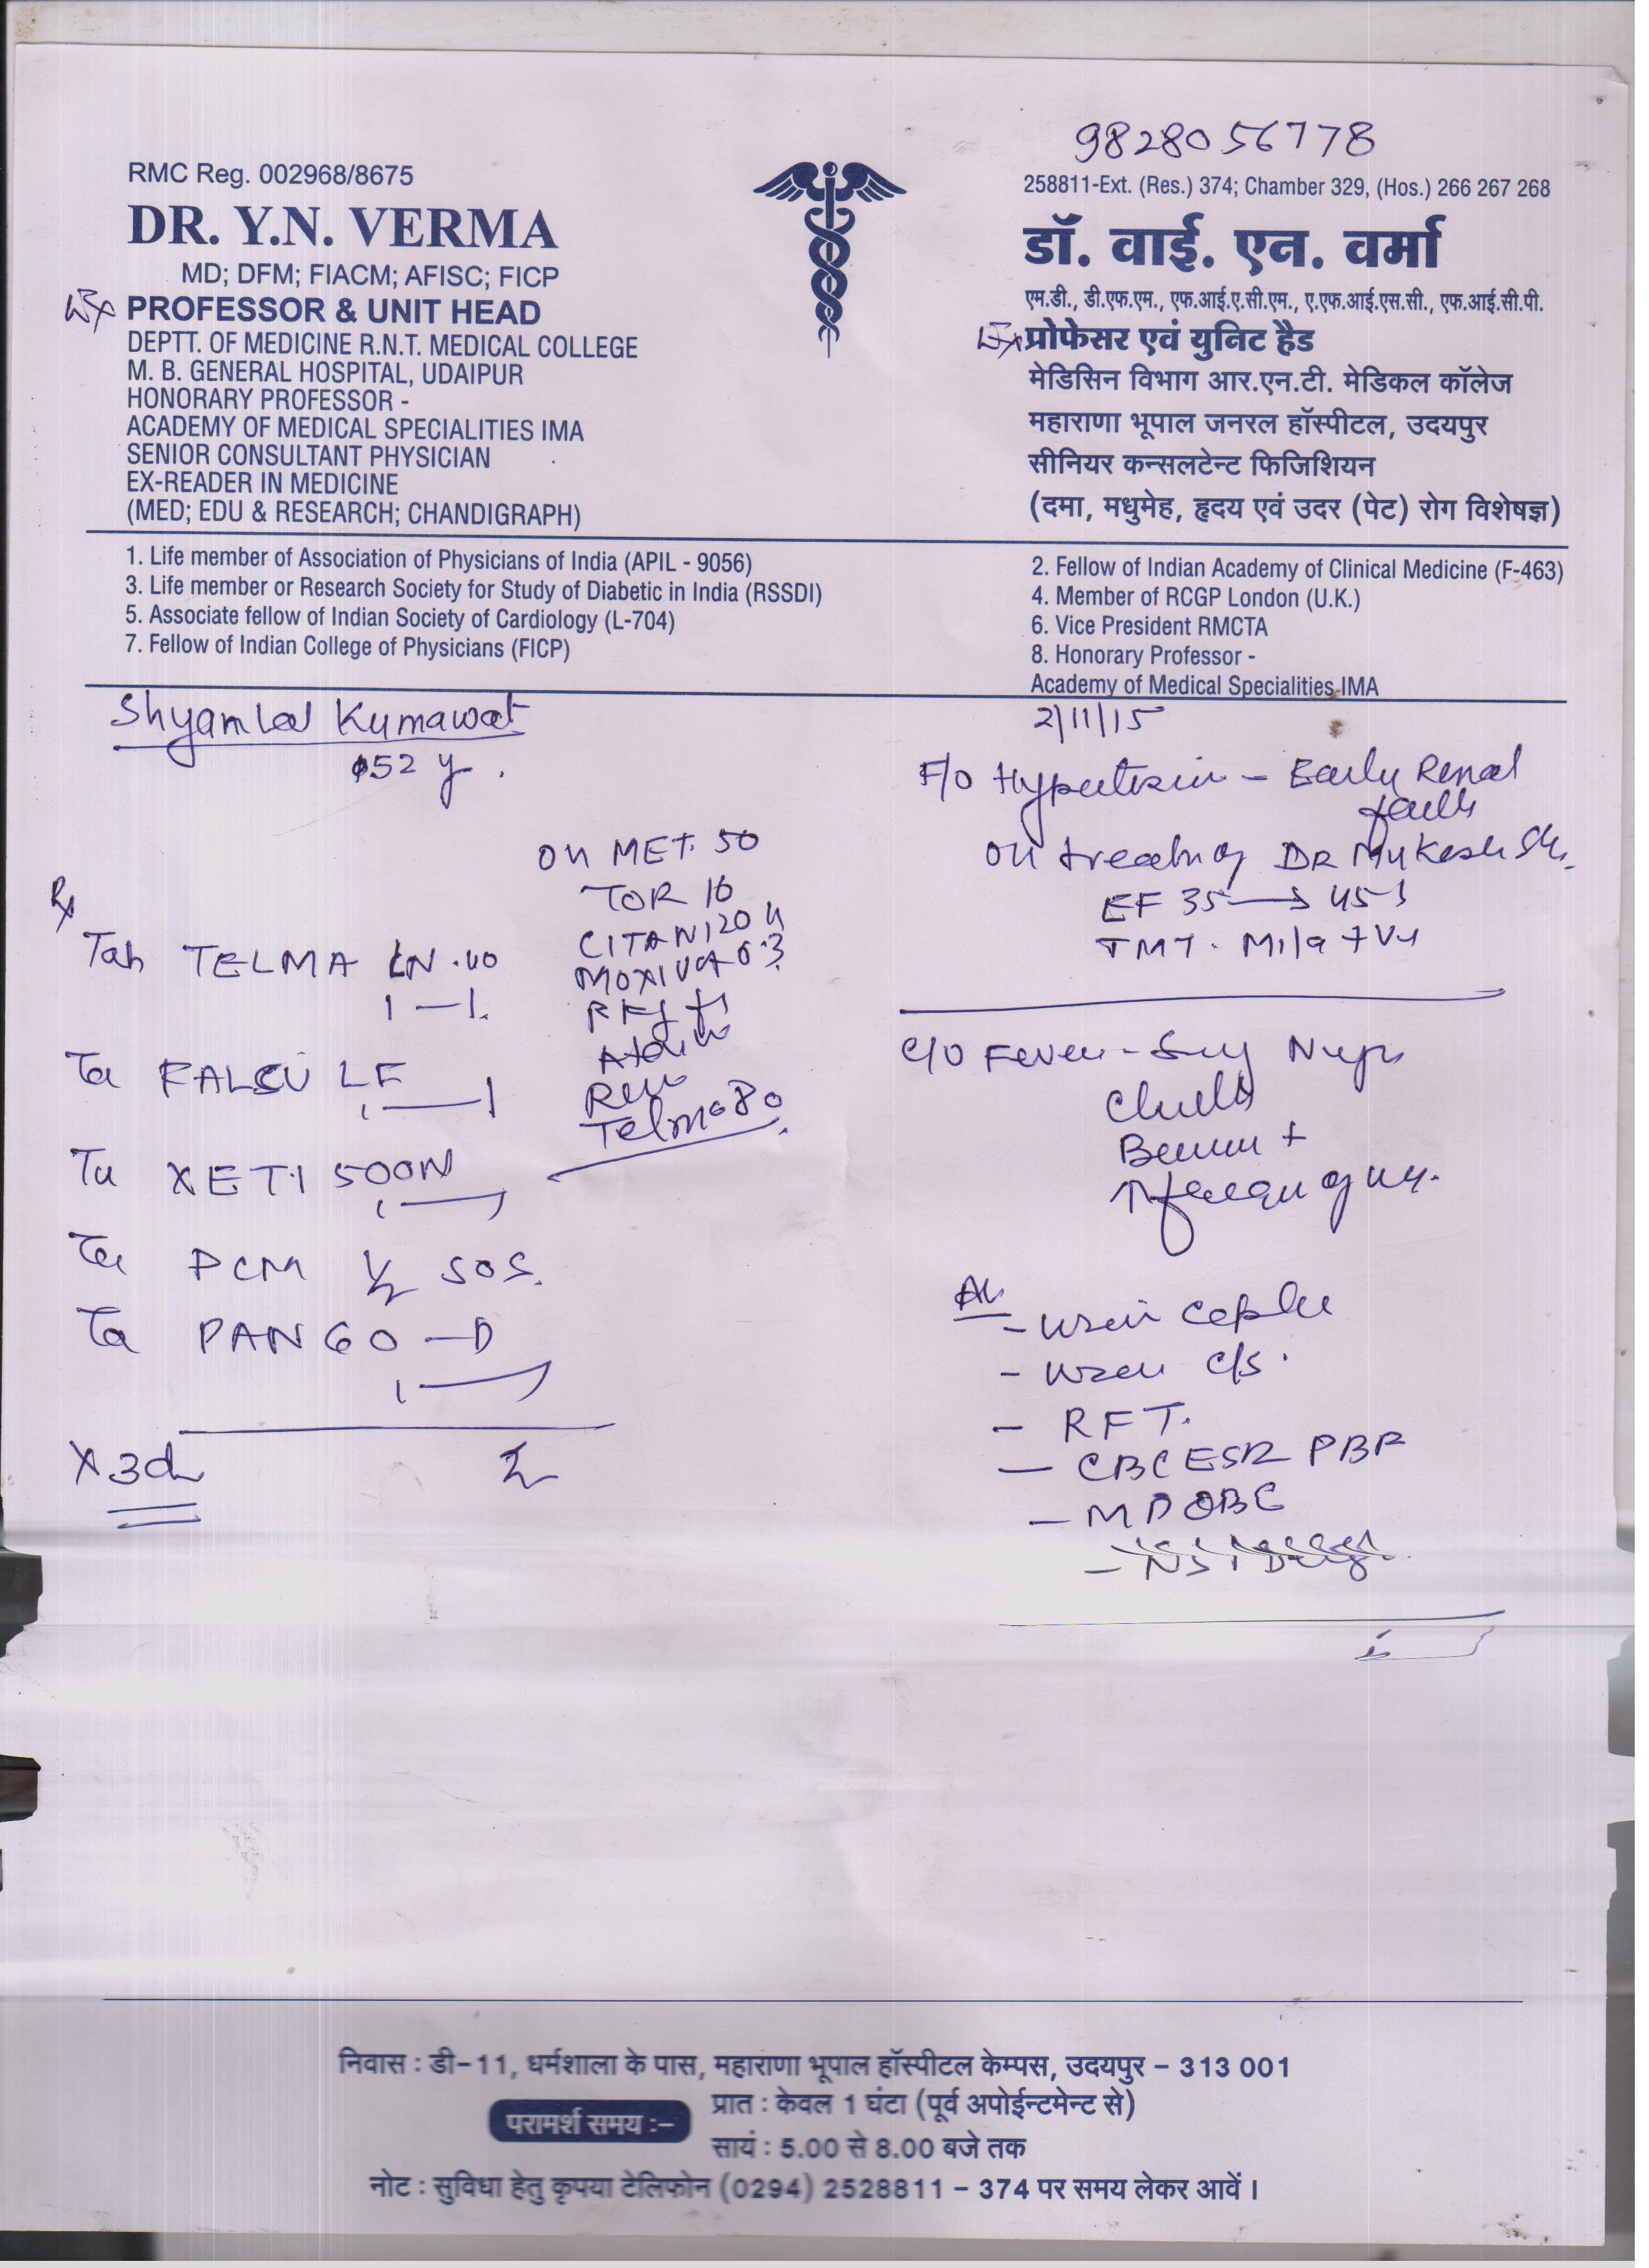 9828056778
RMC Reg. 002968/8675
258811-Ext. (Res.) 374; Chamber 329, (Hos.) 266 267 268
DR. Y.N. VERMA
MD; DFM; FIACM; AFISC; FICP
Ex PROFESSOR & UNIT HEAD
DEPTT. OF MEDICINE R.N.T. MEDICAL COLLEGE
M. B. GENERAL HOSPITAL, UDAIPUR
HONORARY PROFESSOR -
ACADEMY OF MEDICAL SPECIALITIES IMA
SENIOR CONSULTANT PHYSICIAN
EX-READER IN MEDICINE
(MED; EDU & RESEARCH; CHANDIGRAPH)
डॉ. वाई. एन. वर्मा
एम.डी., डी.एफ.एम., एफ.आई.ए.सी.एम., ए.एफ.आई.एस.सी., एफ.आई.सी.पी.
Ex प्रोफेसर एवं युनिट हैड
मेडिसिन विभाग आर.एन.टी. मेडिकल कॉलेज
महाराणा भूपाल जनरल हॉस्पीटल, उदयपुर
सीनियर कन्सलटेन्ट फिजिशियन
(दमा, मधुमेह, हृदय एवं उदर (पेट) रोग विशेषज्ञ)
1. Life member of Association of Physicians of India (APIL - 9056)
2. Fellow of Indian Academy of Clinical Medicine (F-463)
3. Life member or Research Society for Study of Diabetic in India (RSSDI)
4. Member of RCGP London (U.K.)
5. Associate fellow of Indian Society of Cardiology (L-704)
6. Vice President RMCTA
7. Fellow of Indian College of Physicians (FICP)
8. Honorary Professor -
Academy of Medical Specialities IMA
Shyamlal Kumawat
52 y.
2/11/15
F/o Hypertension - Early Renal
on treatm of DR Mukesh Sh.
EF 35 → 45
TMT.
ON MET. 50
TOR 10
Telma 80
Rx
Tab TELMA LN 40
1 — 1.
Ta FALSU LF
1 — 1
XETI 500
PCM 1/2 SOS.
Ta PAN 60 - D
x 3d
C/O Fever
Chills
- Urin Complete
- Urin C/S.
- RFT.
- CBC ESR PBF
- MP QBC
निवास : डी-11, धर्मशाला के पास, महाराणा भूपाल हॉस्पीटल केम्पस, उदयपुर - 313 001
परामर्श समय :-
प्रात : केवल 1 घंटा (पूर्व अपोईन्टमेन्ट से)
सायं : 5.00 से 8.00 बजे तक
नोट : सुविधा हेतु कृपया टेलिफोन (0294) 2528811 - 374 पर समय लेकर आवें ।